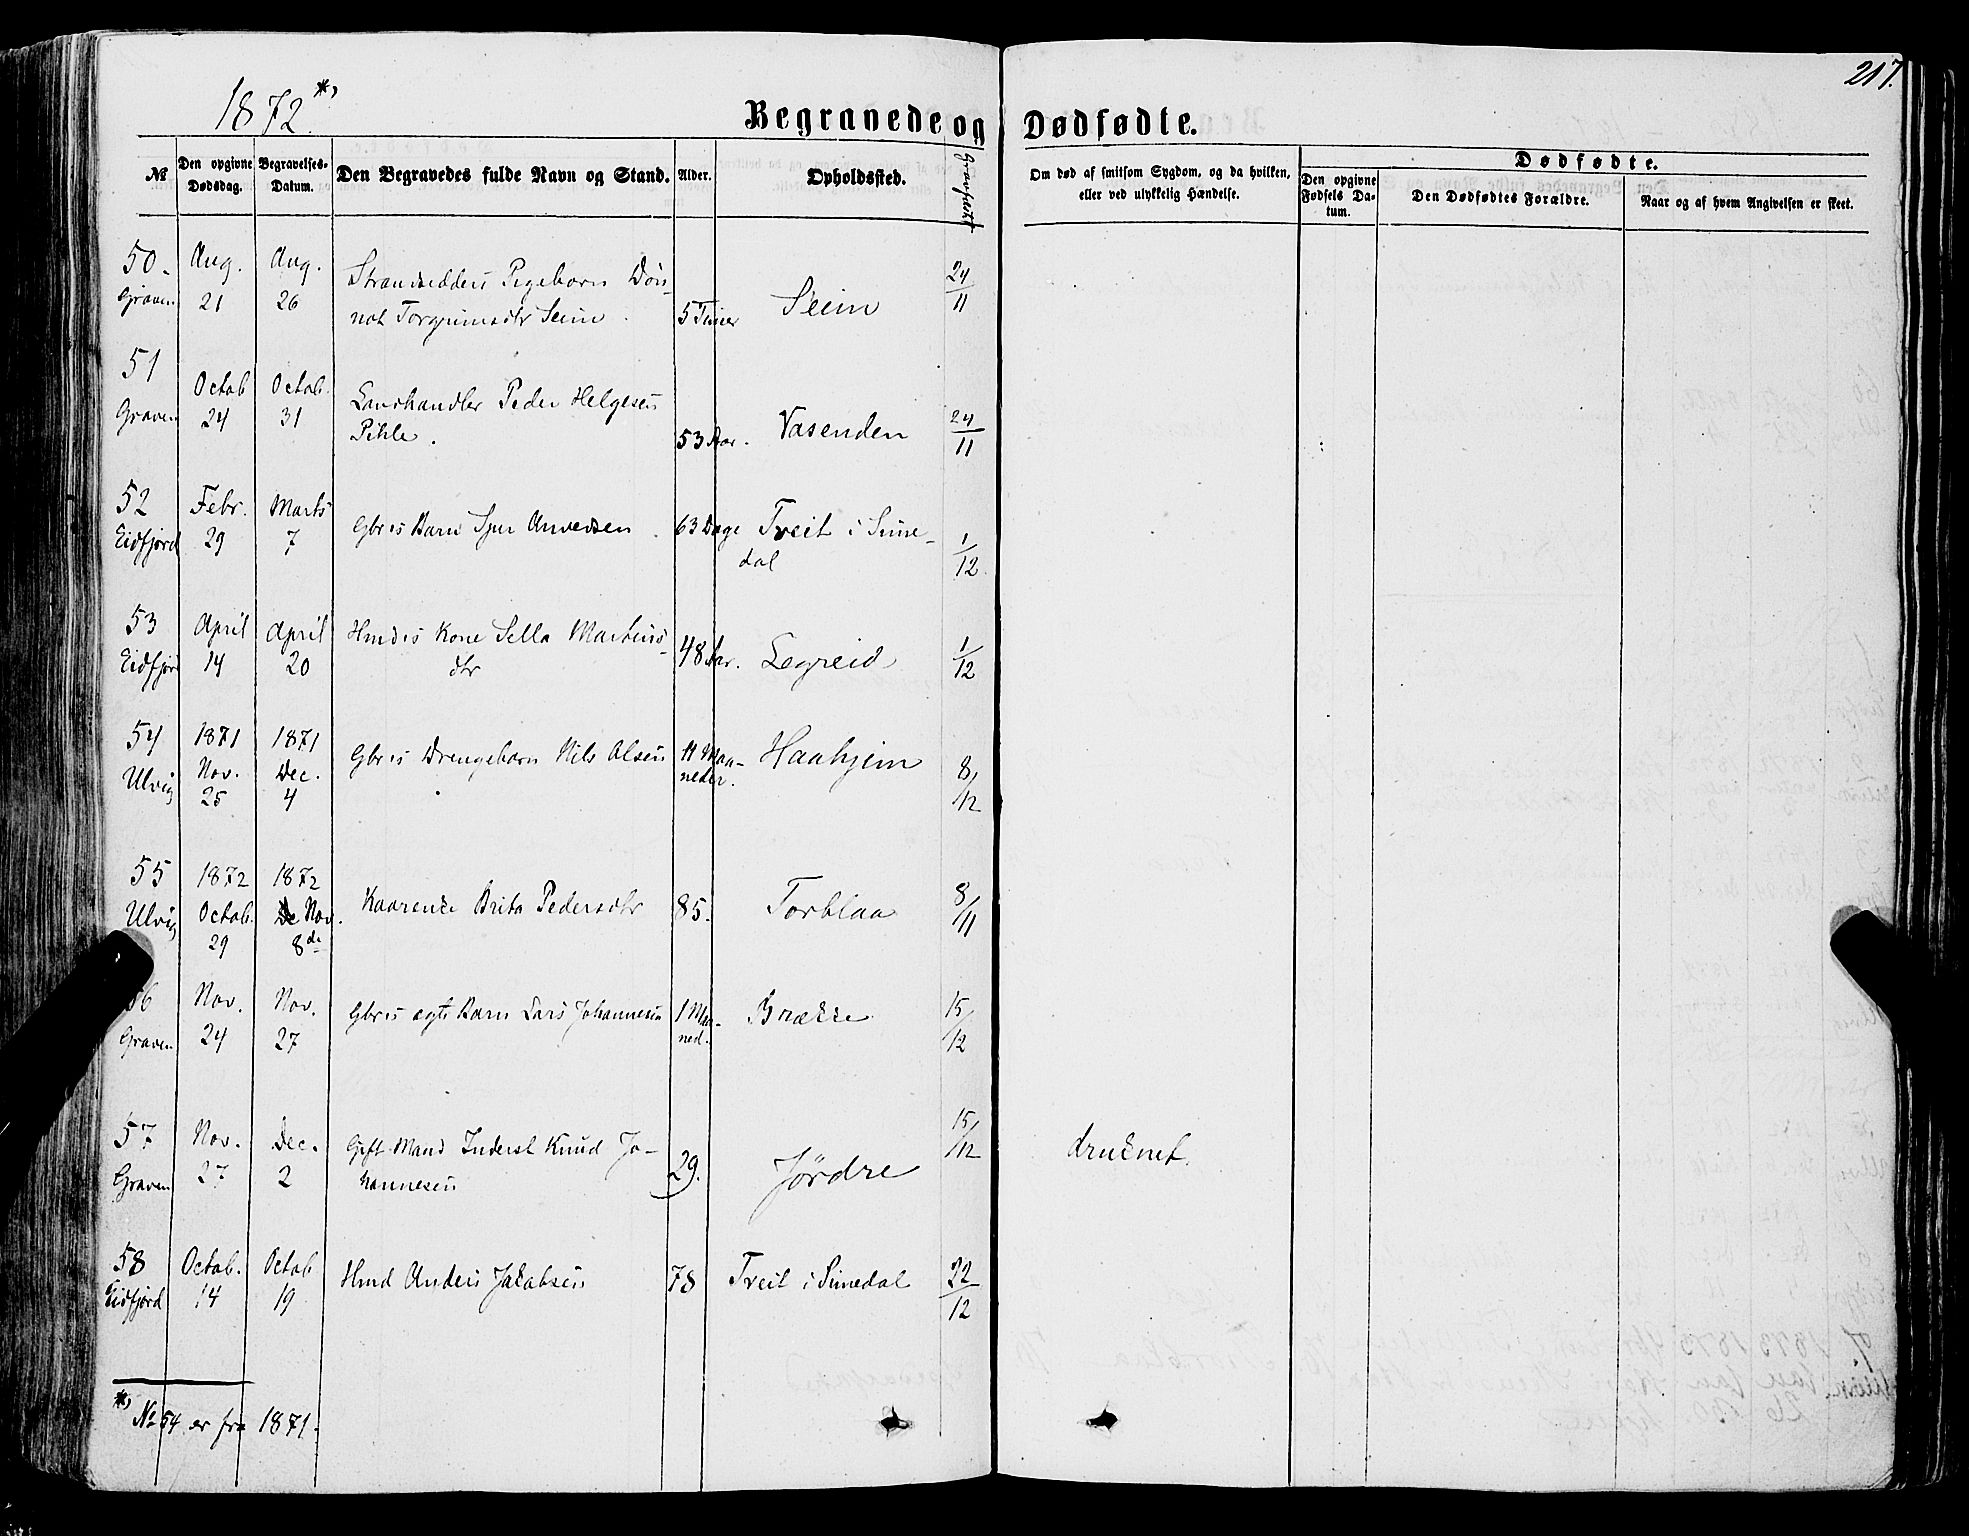 217.
1872 *)
Begravede og Dødfødte.
№
Den opgivne Dødsdag.
Begravelses-Datum.
Den Begravedes fulde Navn og Stand.
Alder.
Opholdssted.
Gravfæstet
Om død af smitsom Sygdom, og da hvilken, eller ved ulykkelig Hændelse.
Dødfødte.
Den opgivne Fødsels Datum.
Den Dødfødtes Forældre.
Naar og af hvem Angivelsen er skeet.
50. Aug. Aug. Strandsidders Pigebarn
Graven 21 26 Torgrimsdtr Seim. 5 Timer Seim 24/11
51 Octob Octob. Landhandler Peder Helgesen
Graven 24 31 Pihle. 53 Aar. Vasenden 24/11
52 Febr. Marts Gbr's Barn 63 Dage Tveit i Sime-
Eidfjord 29 7 dal 1/12.
53 April April Hmds Kone Sella Martins-
Eidfjord 14 20 dtr 48 Aar. Legreid 1/12
54 1871 1871 Gbr's Drengebarn Nils Olsen 11 Maa- Haahjem 8/12
Ulvig Nov. Dec. neder.
25 4
55 1872 1872
Ulvig Octob. De Nov. Kaarende Brita Pedersdtr 85. Torblaa 8/11
29 8de
56 Nov. Nov. Gbr's ægte Barn Lars Johannesen 1 Maa- Brække 15/12
Graven 24 27 ned.
57 Nov. Dec. Gift Mand Inderst Knud Jo- 15/12 druknet.
Graven 27 2 hannesen 29. Jördre
58 Octob. Octob Hmd Anders Jakobsen 78 Tveit i Simedal 22/12
Eidfjord 14 19
*) № 54 er fra 1871.